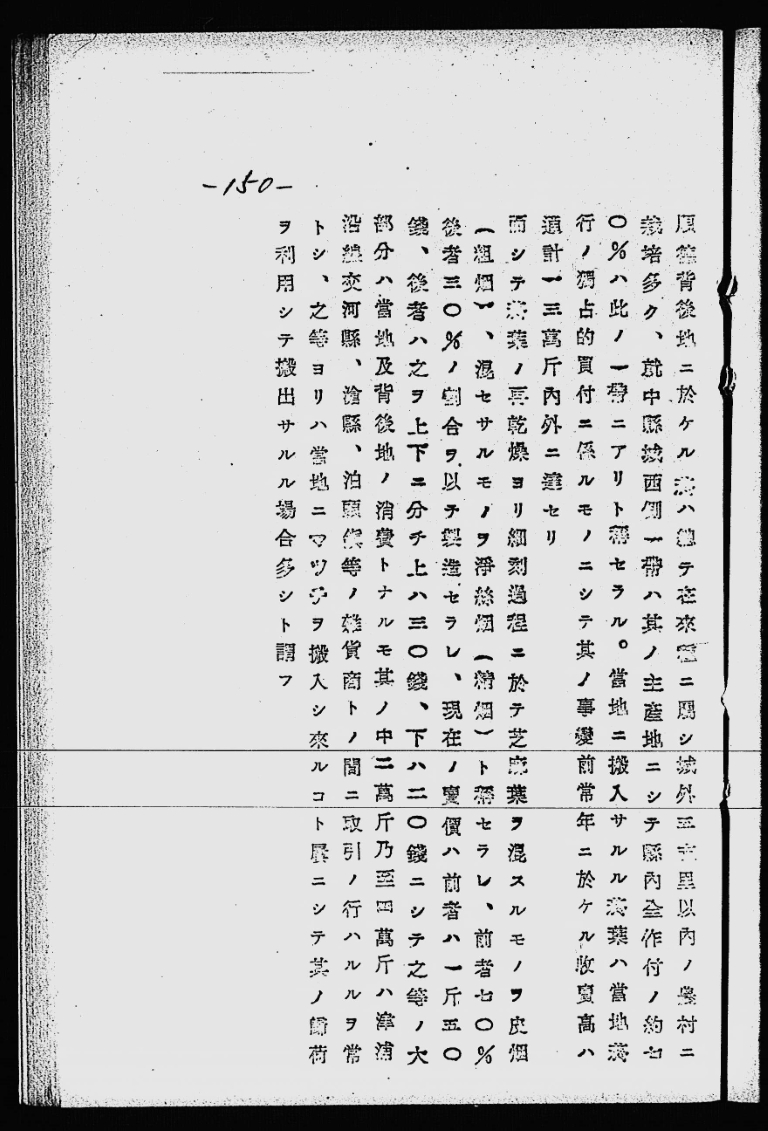 -150-
順德背後地ニ於ケル煙ハ總テ在來種ニ屬シ城外五支里以內ノ農村ニ
栽培多ク、就中縣城西側一帶ハ其ノ主產地ニシテ縣內全作付ノ約七
〇%ハ此ノ一帶ニアリト稱セラル。當地ニ搬入サルル葉ハ當地
行ノ獨占的買付ニ係ルモノニシテ其ノ事變前常年ニ於ケル收買高ハ
通計一三萬斤內外ニ達セリ
而シテ葉ノ再乾燥ヨリ細刻過程ニ於テ芝麻葉ヲ混スルモノヲ皮烟
(粗烟)、混セサルモノヲ淨絲烟(精烟)ト稱セラレ、前者七〇%
後者三〇%ノ割合ヲ以テ製造セラレ、現在ノ賣價ハ前者ハ一斤五〇
錢、後者ハ之ヲ上下ニ分チ上ハ三〇錢、下ハ二〇錢ニシテ之等ノ大
部分ハ當地及背後地ノ消費トナルモ其ノ中二萬斤乃至四萬斤ハ津浦
沿線交河縣、滄縣、泊頭鎮等ノ雜貨商トノ間ニ取引ノ行ハルルヲ常
トシ、之等ヨリハ當地ニマツチヲ搬入シ來ルコト屡ニシテ其ノ歸荷
ヲ利用シテ搬出サルル場合多シト謂フ